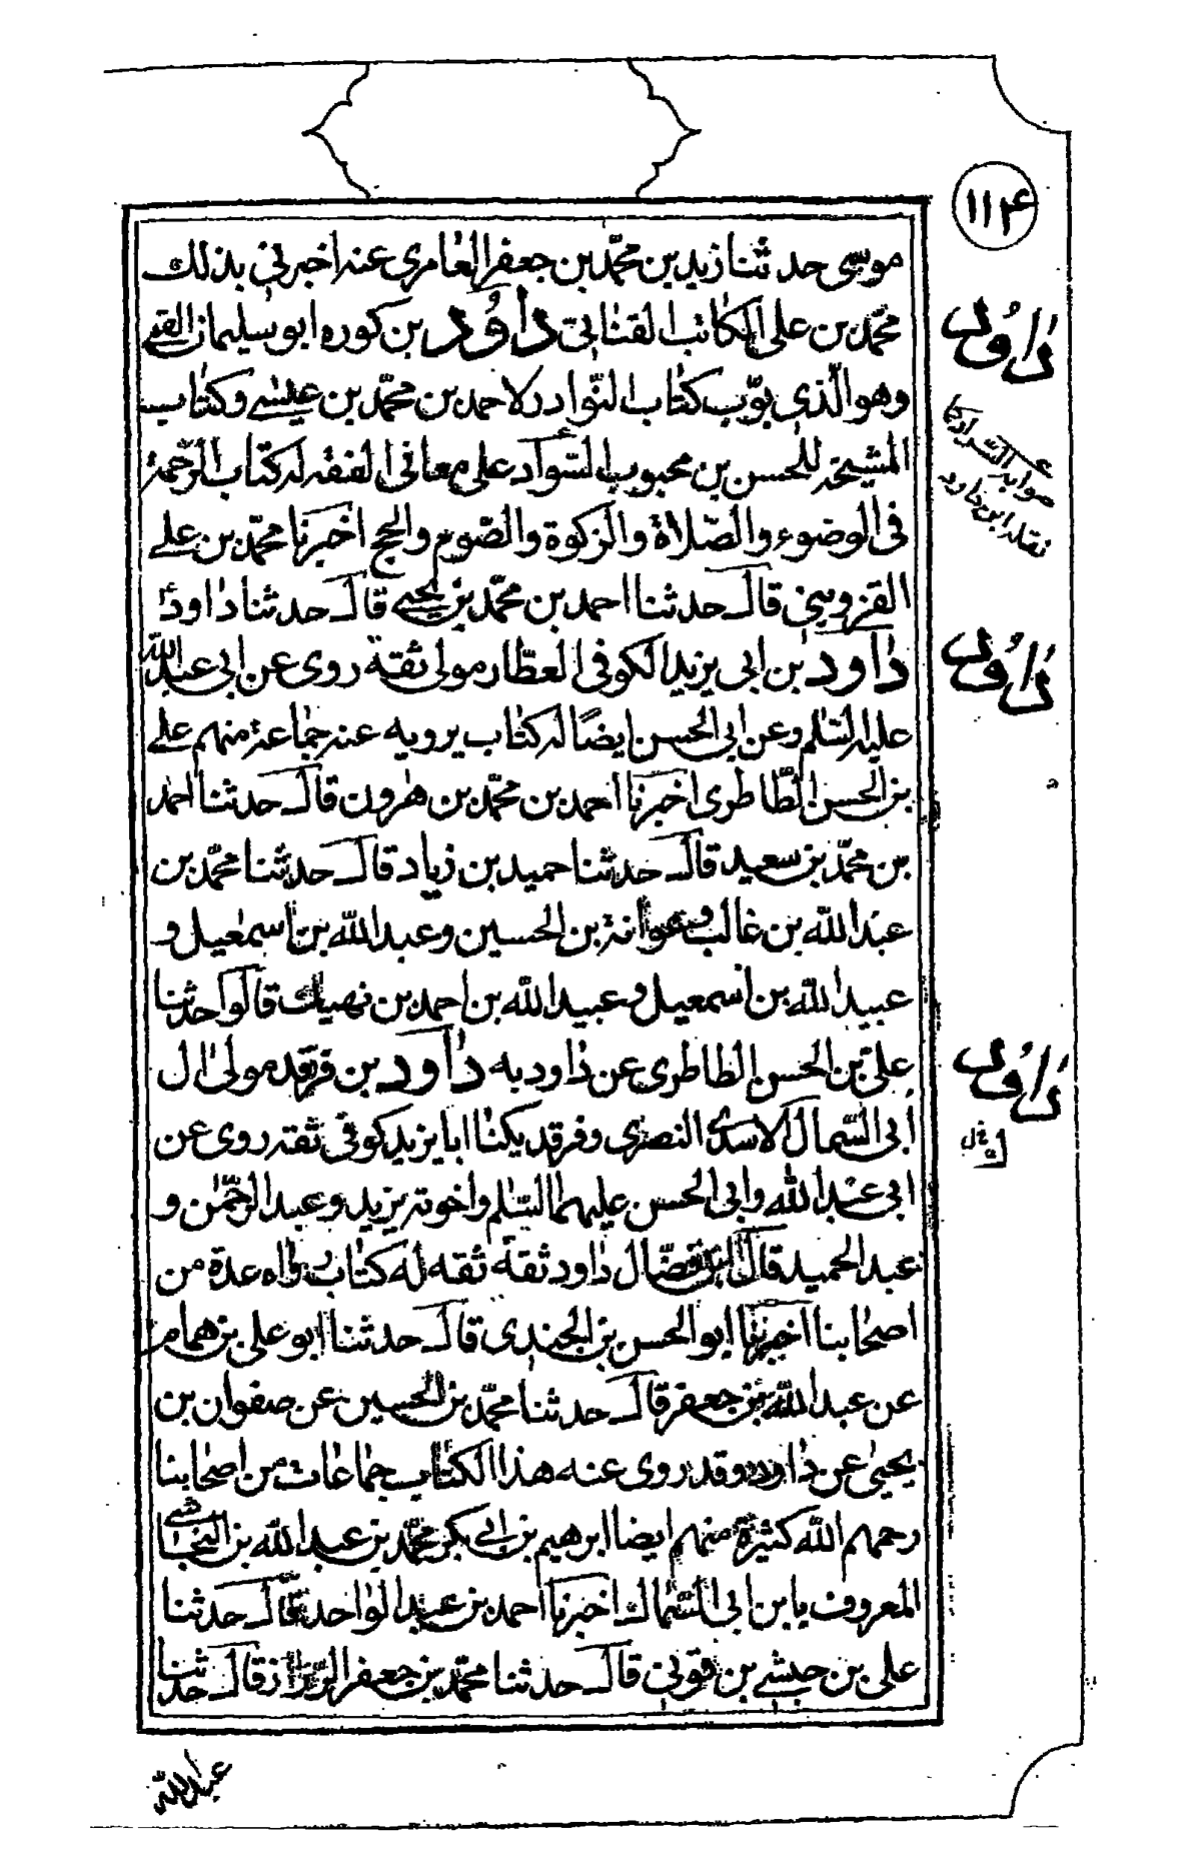 ۱۱۴
موسى حدثنا زيد بن محمّد بن جعفر العامرى عنه اخبرنى بذلك
محمّد بن على الكاتب القنائى داوُد بن كوره ابو سليمان القمى
وهو الّذى بوّب كتاب النّوادر لاحمد بن محمّد بن عيسى وكتاب
المشيخة للحسن بن محبوب السّراد على معانى الفقه له كتاب الرّحمة
فى الوضوء والصّلاة والزكوة والصّوم والحج اخبرنا محمّد بن على
القزوينى قال حدثنا احمد بن محمّد بن يحيى قال حدثنا داود
داود بن ابى يزيد الكوفى العطّار مولى ثقة روى عن ابى عبد الله
عليه السّلم وعن ابى الحسن ايضًا له كتاب يرويه عنه جماعة منهم على
بن الحسن الطّاطرى اخبرنا احمد بن محمّد بن هرون قال حدثنا احمد
بن محمّد بن سعيد قال حدثنا حميد بن زياد قال حدثنا محمّد بن
عبد الله بن غالب وعوانة بن الحسين وعبد الله بن اسمعيل و
عبيد الله بن اسمعيل وعبيد الله بن احمد بن نهيك قالوا حدثنا
على بن الحسن الطاطرى عن داود به داود بن فرقد مولى ال
ابى السّمال الاسدى النصرى وفرقد يكنّا ابا يزيد كوفى ثقة روى عن
ابى عبد الله وابى الحسن عليهما السّلم واخوته يزيد وعبد الرحمن و
عبد الحميد قال ابن فضّال داود ثقة ثقه له كتاب رواه عدة من
اصحابنا اخبرنا ابو الحسن بن الجندى قال حدثنا ابو على بن همام
عن عبد الله بن جعفر قال حدثنا محمّد بن الحسين عن صفوان بن
يحيى عن داود وقد روى عنه هذا الكتاب جماعات من اصحابنا
رحمهم الله كثيرة منهم ايضا ابرهيم بن ابى بكر محمّد بن عبد الله بن النجاشى
المعروف بابن ابى السّماك اخبرنا احمد بن عبد الواحد قال حدثنا
على بن حبشى بن قونى قال حدثنا محمّد بن جعفر الرزاز قال حدثنا
داوُد
صوابه السّراد كما
نقله ابن داود
داوُد
داوُد
عبد الله